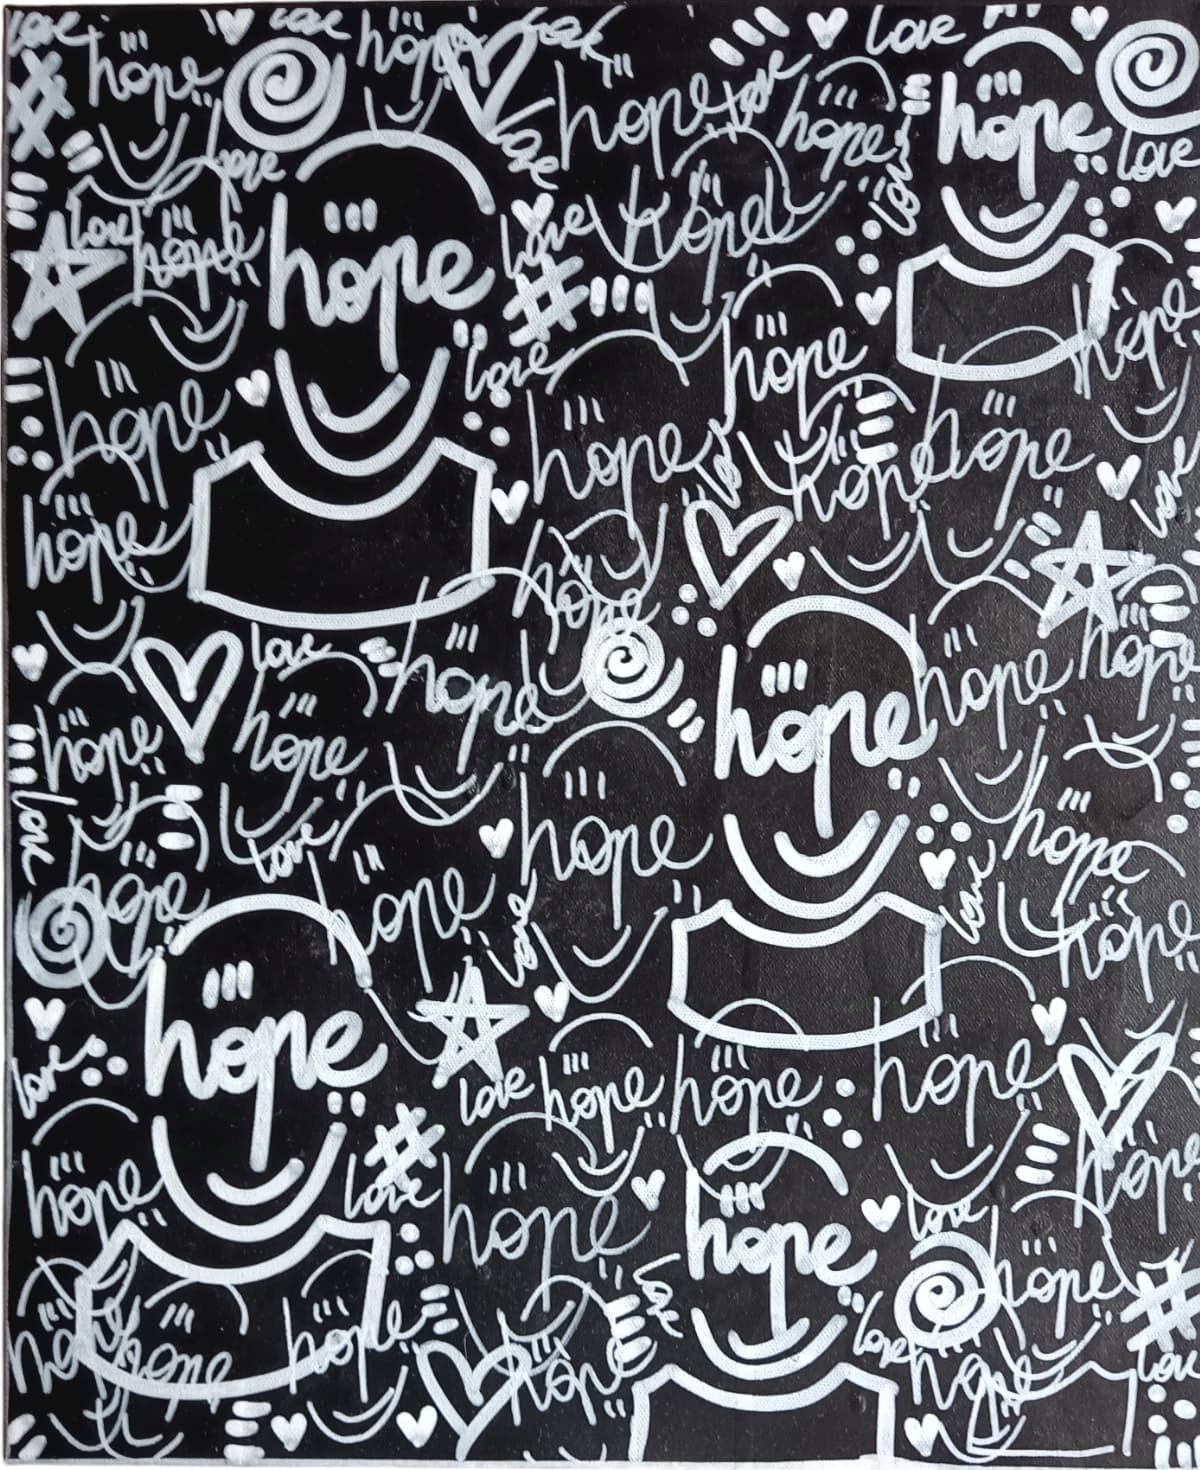 love
love
love
hope
hope
love
hope
hope
hope
love
love
love
love
hope
love
hope
hope
love
hope
hope
love
hope
hope
hope
hope
hope
love
hope
hope
hope
love
hope
hope
hope
hope
hope
hope
love
hope
hope
love
hope
love
hope
love
love
hope
hope
love
love
hope
hope
hope
hope
love
hope
love
hope
hope
hope
love
hope
hope
love
hope
hope
hope
hope
hope
love